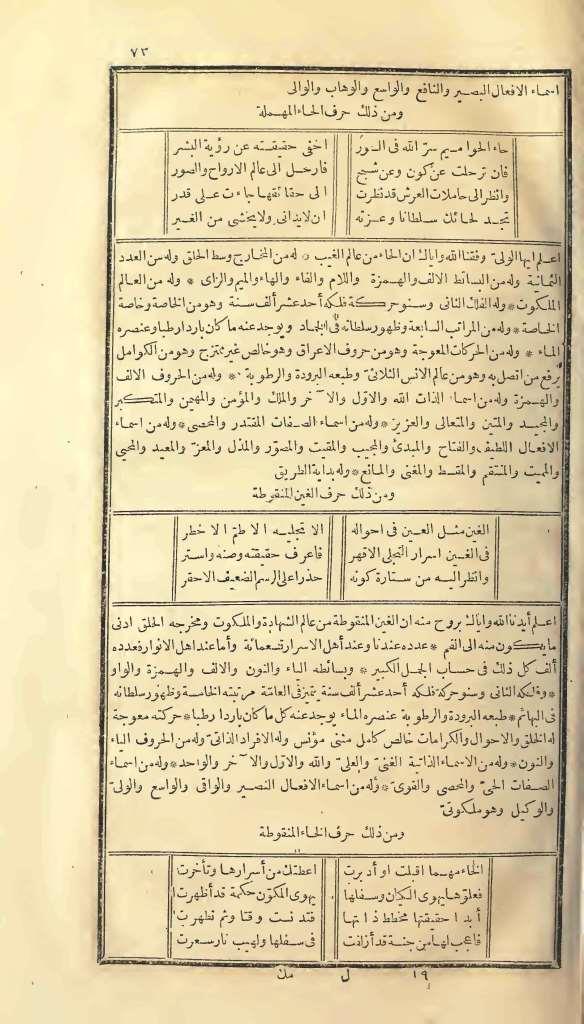 ٧٣
اسماء الافعال البصير والنافع والواسع والوهاب والوالى
ومن ذلك حرف الحاء المهملة
حاء الحواميم سرّ الله فى السور اخفى حقيقته عن رؤية البشر
فان ترحلت عن كون وعن شبح فارحل الى عالم الارواح والصور
وانظر الى حاملات العرش قد نظرت الى حقائقها جاءت على قدر
تجد لحائك سلطانا وعزته ان لا يدانى ولا يخشى من الغير
اعلم ايها الولىّ وفقنا الله واياك ان الحاء من عالم الغيب وله من المخارج وسط الحلق وله من العدد
الثمانية وله من البسائط الالف والهمزة واللام والفاء والهاء والميم والزاى * وله من العالم
الملكوت * وله الفلك الثانى وسنو حركة فلكه أحد عشر ألف سنة وهو من الخاصة وخاصة
الخاصة * وله من المراتب السابعة وظهور سلطانه فى الجماد ويوجد عنه ما كان باردا رطبا وعنصره
الماء * وله من الحركات المعوجة وهو من حروف الاعراق وهو خالص غير ممتزج وهو من الكوامل
يرفع من اتصل به وهو من عالم الانس الثلاثىّ وطبعه البرودة والرطوبة * وله من الحروف الالف
والهمزة وله من اسماء الذات الله والاوّل والآخر والملك والمؤمن والمهيمن والمتكبر
والمجيد والمتين والمتعالى والعزيز * وله من اسماء الصفات المقتدر والمحصى * وله من اسماء
الافعال اللطيف والفتاح والمبدئ والمجيب والمقيت والمصوّر والمذل والمعز والمعيد والمحيى
والمميت والمنتقم والمقسط والمغنى والمانع * وله بداية الطريق
ومن ذلك حرف الغين المنقوطة
الغين مثل العين فى احواله الا تجليه الاطمّ الاخطر
فى الغين اسرار التجلى الاقهر فاعرف حقيقته وصنه واستر
وانظر اليه من ستارة كونه حذرا على الرسم الضعيف الاحقر
اعلم أيدنا الله واياك بروح منه ان الغين المنقوطة من عالم الشهادة والملكوت ومخرجه الحلق ادنى
ما يكون منه الى الفم * عدده عندنا وعند أهل الاسرار تسعمائة وأما عند اهل الانوار فعدده
ألف كل ذلك فى حساب الجمل الكبير * وبسائطه الياء والنون والالف والهمزة والواو
* وفلكه الثانى وسنو حركة فلكه أحد عشر ألف سنة يتميز فى العامّة مرتبته الخامسة وظهور سلطانه
فى البهائم * طبعه البرودة والرطوبة عنصره الماء يوجد عنه كل ما كان باردا رطبا * حركته معوجة
له الخلق والاحوال والكرامات خالص كامل مثنى مؤنس وله الافراد الذاتىّ وله من الحروف الياء
والنون * وله من الاسماء الذاتية الغنىّ والعلىّ والله والاوّل والآخر والواحد * وله من اسماء
الصفات الحىّ والمحصى والقوىّ * وله من اسماء الافعال النصير والواقى والواسع والولىّ
والوكيل وهو ملكوتىّ
ومن ذلك حرف الخاء المنقوطة
الخاء مهما اقبلت أو أدبرت اعطتك من أسرارها وتأخرت
فعلوّها يهوى الكيان وسفلها يهوى المكوّن حكمة قد أظهرت
أبدا حقيقتها مخطط ذاتها فتدنست وقتا وثم تطهرت
فاعجب لها من جنة قد أزلفت فى سفلها ولهيب نار سعرت
١٩ ل مك